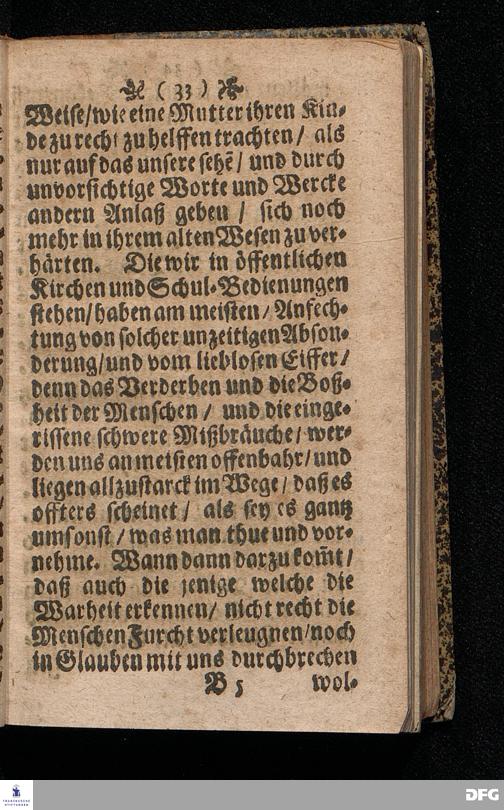 ( 33 )
Weise/wie eine Mutter ihren Kin-
de zu recht zu helffen trachten/ als
nur auf das unsere sehē/ und durch
unvorsichtige Worte und Wercke
andern Anlaß geben / sich noch
mehr in ihrem alten Wesen zu ver-
härten. Die wir in öffentlichen
Kirchen und Schul-Bedienungen
stehen/haben am meisten/ Anfech-
tung von solcher unzeitigen Abson-
derung/und vom lieblosen Eiffer/
denn das Verderben und die Boß-
heit der Menschen / und die einge-
rissene schwere Mißbräuche/ wer-
den uns an meisten offenbahr/ und
liegen allzustarck im Wege/ daß es
offters scheinet/ als sey es gantz
umsonst/ was man thue und vor-
nehme. Wann dann darzu kom̄t/
daß auch die jenige welche die
Warheit erkennen/ nicht recht die
Menschen Furcht verleugnen/noch
in Glauben mit uns durchbrechen
B 5 wol-
FRANCKESCHE
STIFTUNGEN
DFG